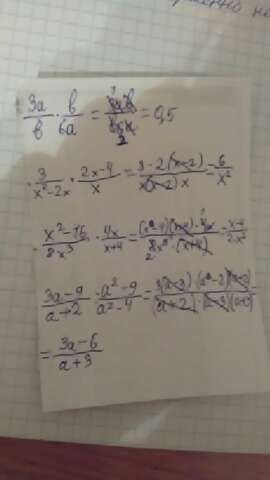 3a/b · b/6a = 3ab/b6a = 0,5
3/(x²-2x) · (2x-4)/x = 3·2(x-2)/(x(x-2)x) = 6/x²
(x²-16)/8x³ · 4x/(x+4) = (x-4)(x+4)·4x/(8x³·(x+4)) = (x-4)/2x²
(3a-9)/(a+2) · (a²-9)/(a²-4) =
= (3a-6)/(a+3)